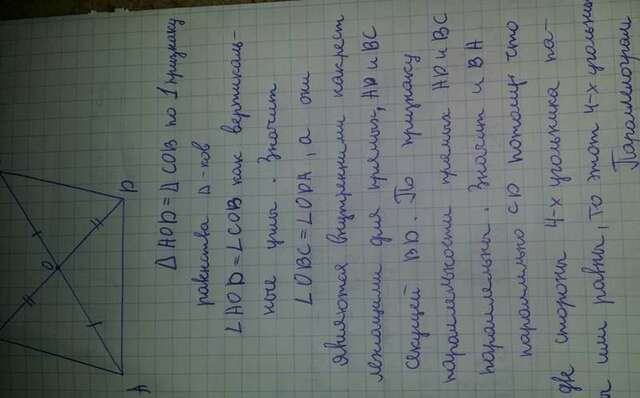 A
D
O
ΔAOD=ΔCOB по 1 признаку
равенства Δ-ков
∠AOD=∠COB как вертикаль-
ные углы. Значит
∠OBC=∠ODA, а они
являются внутренними накрест
лежащими для прямых, AD и BC
секущей BD. По признаку
параллельности прямых AD и BC
параллельны. Значит и BA
параллельно CD потому что
две стороны 4-х угольника па-
или равны, то этот 4-х угольник
Параллелограм